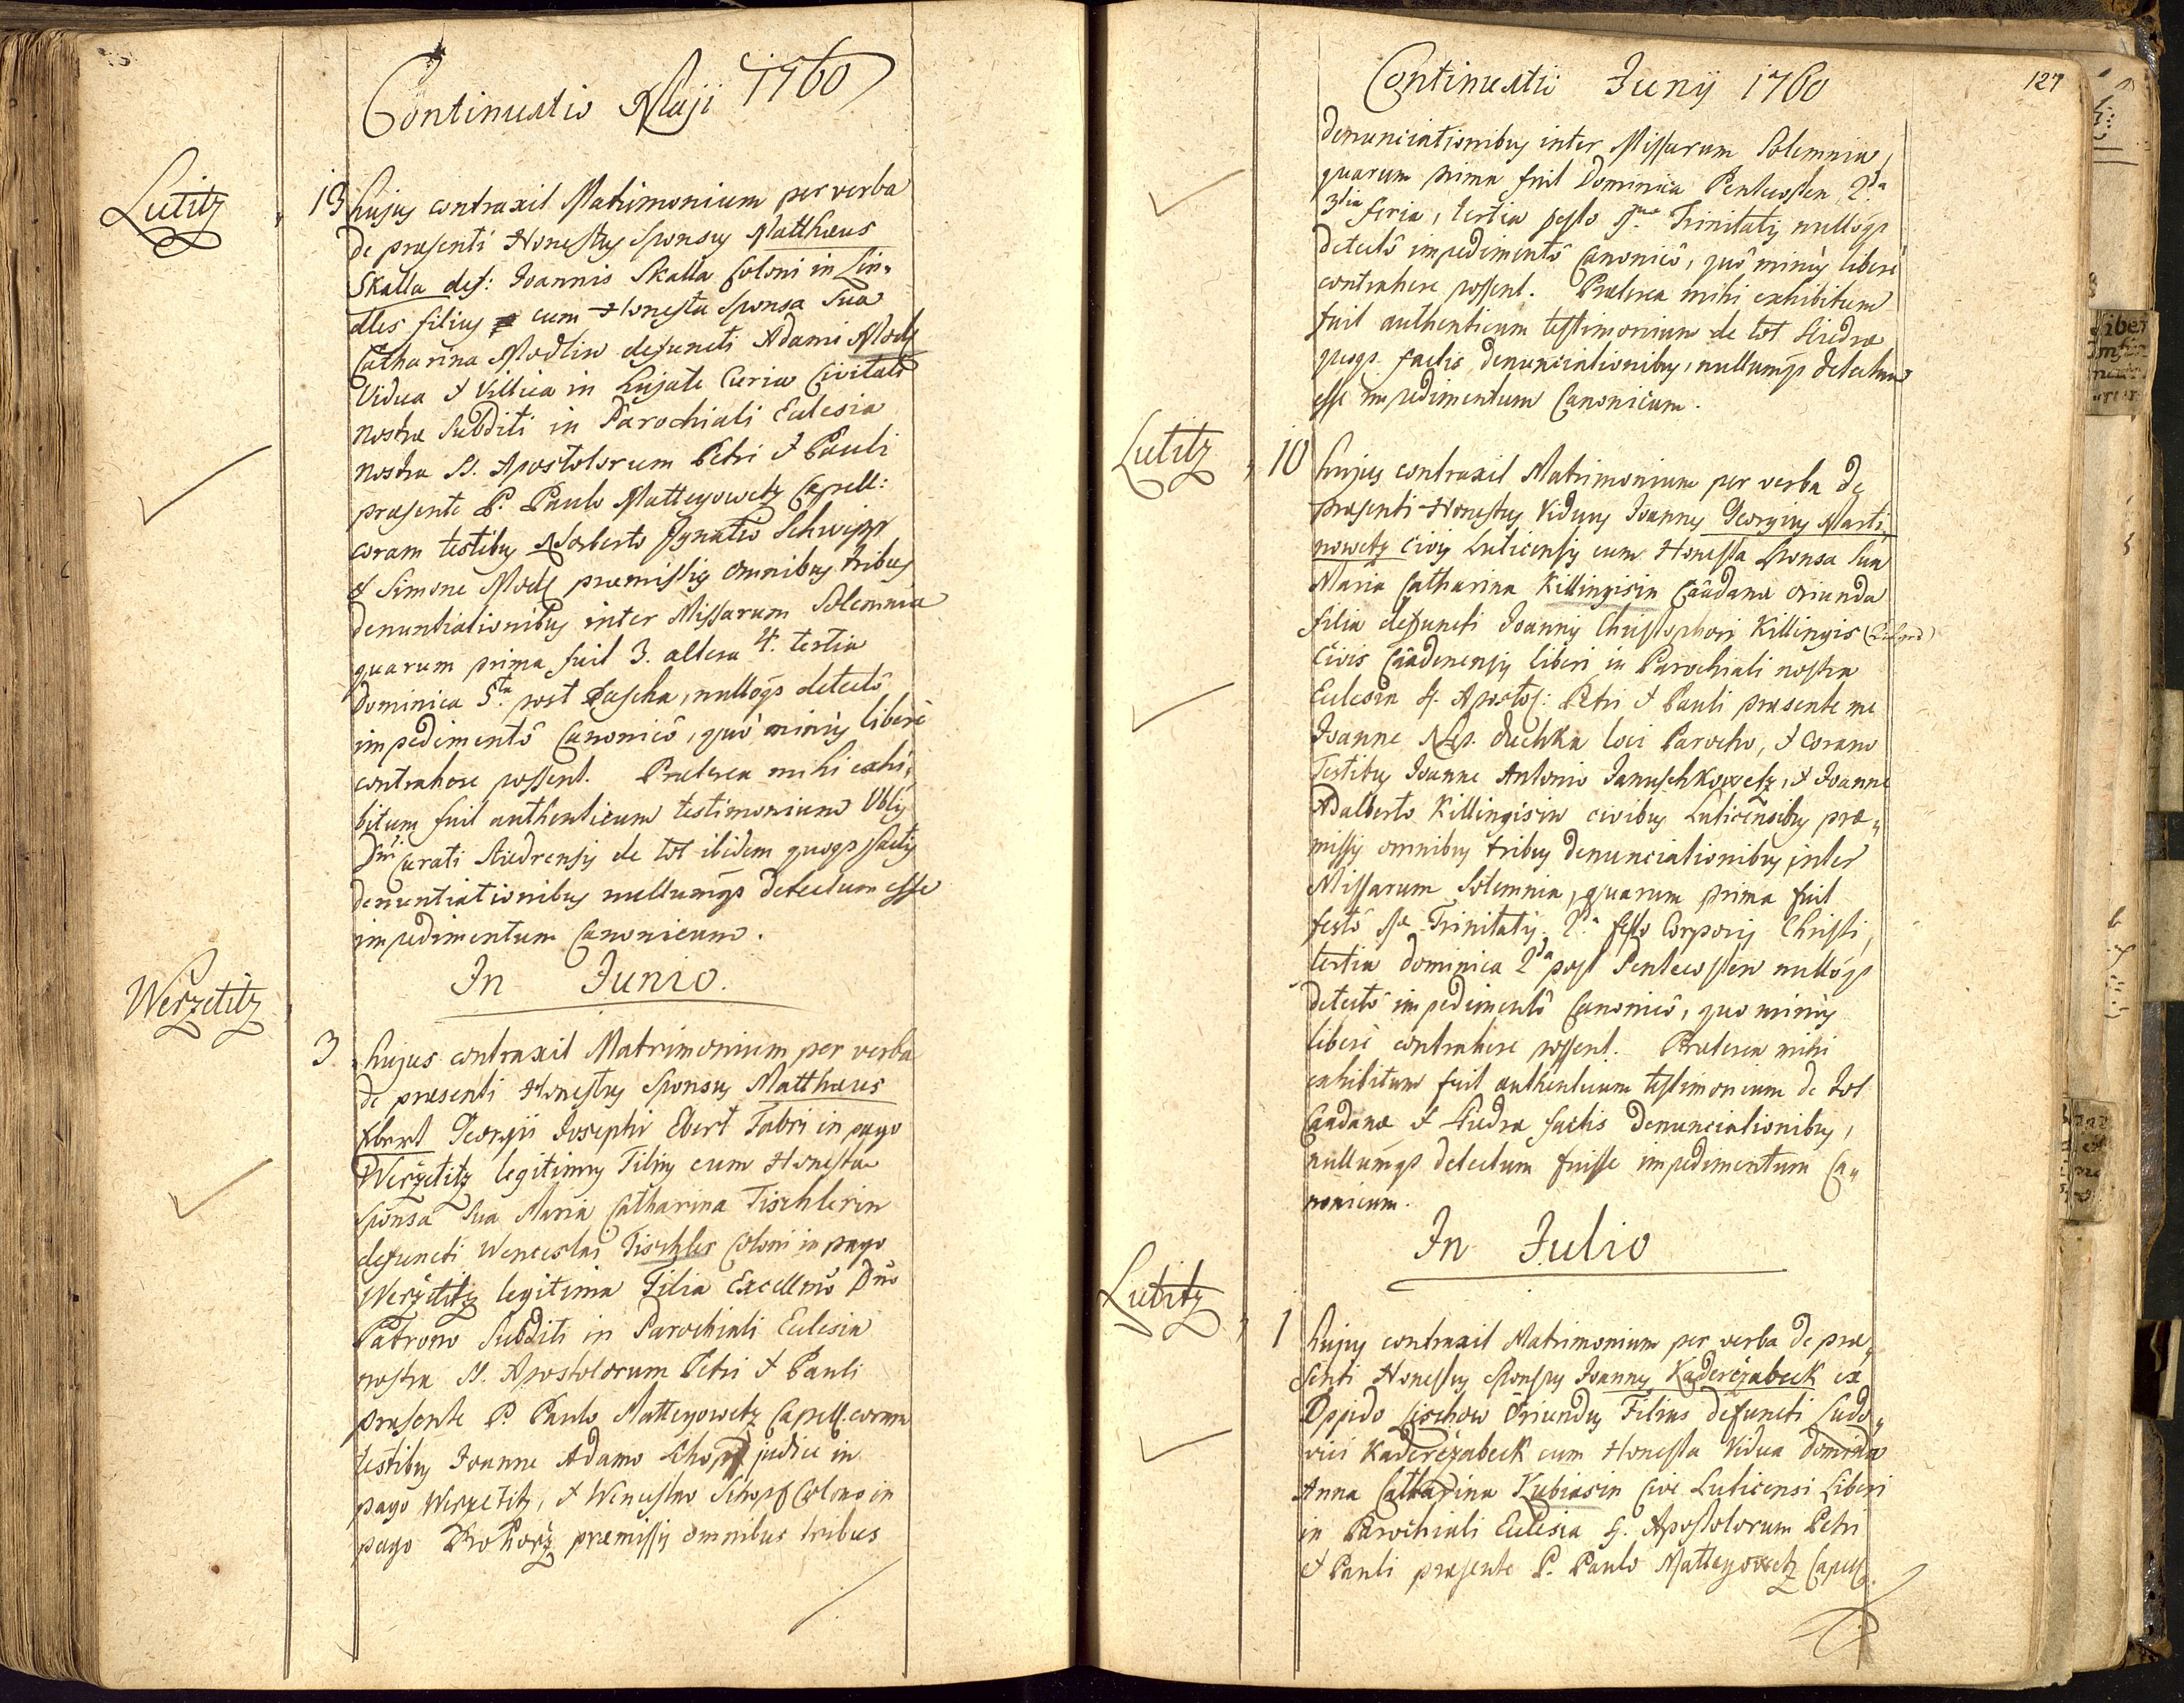 Continuatio Maji 1760
Lutitz
13 hujus contraxit Matrimonium per verba
de praesenti Honestus Sponsus Matthaeus
Skalla def: Joannis Skalla Coloni in Lin„
dles filius cum Honesta Sponsa Sua
Catharina Modlin defuncti Adami Modl
Vidua & Villica in hujate Curia Civitati
nostrae Subditi in Parochiali Eclesia
nostra SS. Apostolorum Petri & Pauli
praesente P. Paulo Matteyowetz Capell:
coram testibus Norberto Ignatio Schwipp
& Simone Modl praemissis omnibus tribus
denuntiationibus inter Missarum Solemnia
quarum prima fuit 3. altera 4. tertia
Dominica 5ta post Pascha, nulloqs detectô
impedimentô Canonicô, quò minùs liberè
contrahere possent. Praeterea mihi exhi„
bitum fuit authenticum testimonium Vblis
Dni Curati Stiedrensis de tot ibidem quoqs factis
denuntiationibus nullumqs detectum esse
impedimentum Canonicum.
In Junio.
Werzetitz
3 hujus contraxit Matrimonium per verba
de praesenti Honestus Sponsus Matthaeus
Ebert Georgii Josephi Ebert Fabri in pago
Werzetitz legitimus Filius cum Honesta
Sponsa Sua Maria Catharina Tischlerin
defuncti Wenceslai Tischler Coloni in pago
Werzetitz legitima Filia Excellmo Dno
Patrono Subditi in Parochiali Eclesia
nostra SS. Apostolorum Petri & Pauli
praesente P. Paulo Matteyowetz Capell. coram
testibus Joanne Adamo Schopf judice in
pago Werzetitz, & Wenceslao Schopf Colono in
pago Prohorz praemissis omnibus tribus
127
Continuatii Junij 1760
denunciationibus inter Missarum Solemnia,
quarum prima fuit Dominica Pentecosten, 2da
3tia feria, tertia festo Smae Trinitatis nullôqs
detectô impedimentô Canonicô, quô minùs liberè
contrahere possent. Praeterea mihi exhibitum
fuit authenticum testimonium de tot Stiedrae
quoqs factis denunciationibus, nullumqs detectum
esse impedimentum Canonicum.
Lutitz
10 hujus contraxit Matrimonium per verba de
praesenti Honestus Viduus Joannes Georgius Marti„
nowetz Civis Luticensis cum Honesta Sponsa sua
Maria Catharina Killingisin Caadanae oriunda
filia defuncti Joannis Christophori Killingis
Civis Caadenensis liberi in Parochiali nostra
Eclesia SS. Apostol: Petri & Pauli praesente me
Joanne Nep. Duchka loci Parocho, & Coram
Testibus Joanne Antonio Januschkowetz, & Joanne
Adalberto Killingisin civibus Luticensibus prae„
missis omnibus tribus denunciationibus inter
Missarum Solemnia, quarum prima fuit
festô Sae Trinitatis. 2da festo Corporis Christi,
tertia Dominica 2da post Pentecosten nullôqs
detectô impedimentô Canonicô, quo minùs
liberè contrahere possent. Praeterea mihi
exhibitum fuit authenticum testimonium de tot
Caadanae & Stiedrae factis denunciationibus,
nullumqs detectum fuisse impedimentum Ca„
nonicum.
In Julio
Lutitz
1 hujus contraxit Matrimonium per verba de prae„
senti Honestus Sponsus Joannes Kaderézabeck ex
Oppido Lischow Oriundus Filius defuncti Ludo„
vici Kaderézabeck cum Honesta Vidua domina
Anna Catharina Kubiasin Cive Luticensi Liberi
in Parochiali Eclesia SS. Apostolorum Petri
& Pauli praesente P. Paulo Matteyowetz Capell.